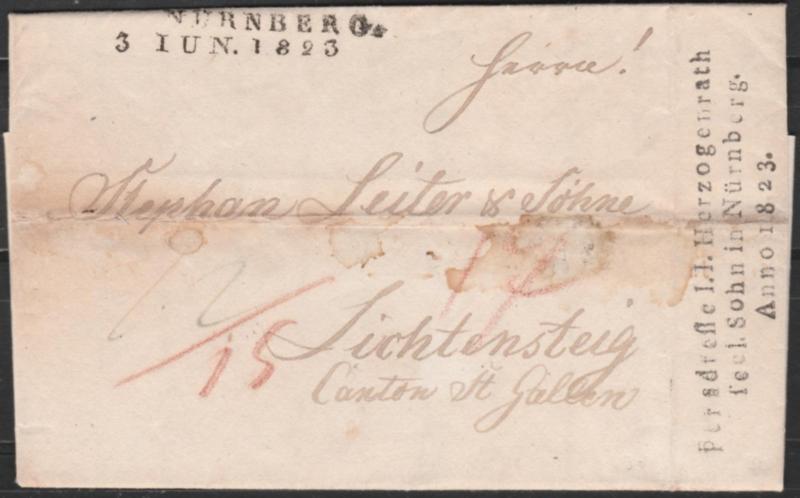 NÜRNBERG.
3 IUN. 1823
Herrn!
Stephan Leiter & Söhne
12
14
15
Lichtensteig
Canton St Gallen
per adresse I. I. Herzogenrath
seel. Sohn in Nürnberg.
Anno 1823.